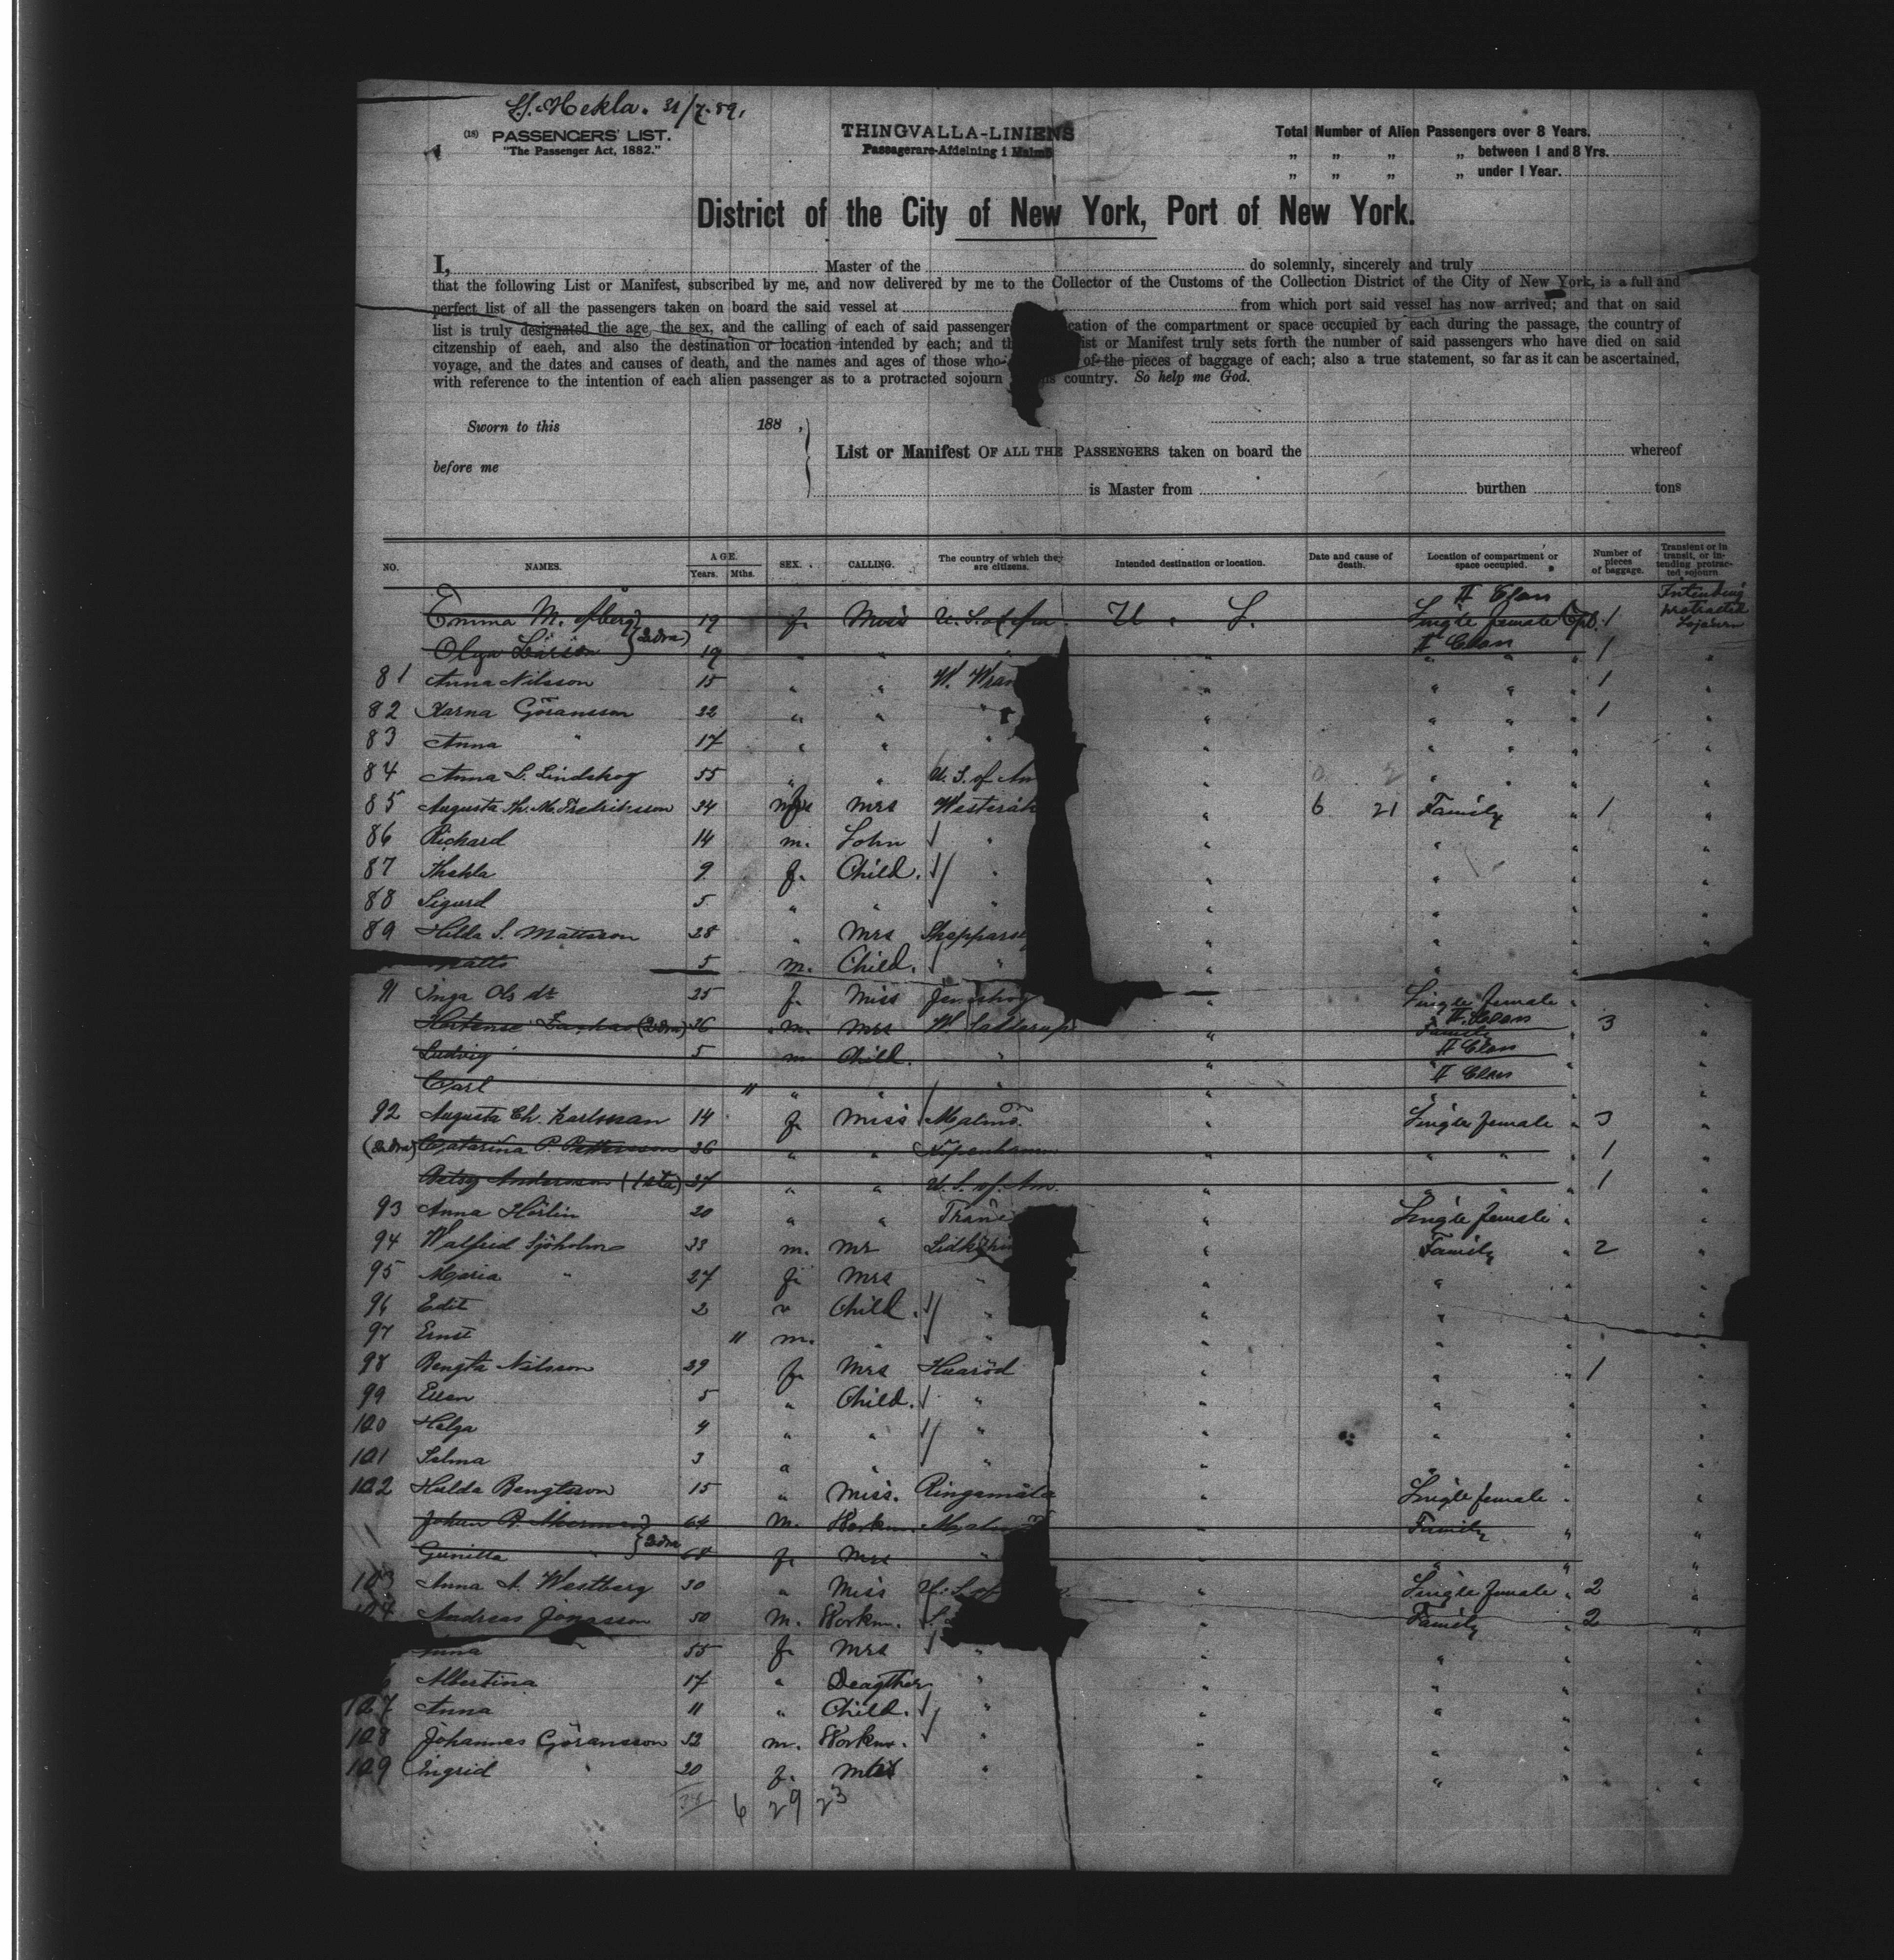 S/S. Hekla. 31/7.89.
(18) PASSENGERS' LIST.
"The Passenger Act, 1882."
THINGVALLA-LINIENS
Passagerare-Afdelning i Malmö
Total Number of Alien Passengers over 8 Years.
„ „ „ „ between 1 and 8 Yrs.
„ „ „ „ under 1 Year.
District of the City of New York, Port of New York.
I, Master of the do solemnly, sincerely and truly
that the following List or Manifest, subscribed by me, and now delivered by me to the Collector of the Customs of the Collection District of the City of New York, is a full and
perfect list of all the passengers taken on board the said vessel at from which port said vessel has now arrived; and that on said
list is truly designated the age, the sex, and the calling of each of said passenger cation of the compartment or space occupied by each during the passage, the country of
citzenship of eaeh, and also the destination or location intended by each; and th ist or Manifest truly sets forth the number of said passengers who have died on said
voyage, and the dates and causes of death, and the names and ages of those who of the pieces of baggage of each; also a true statement, so far as it can be ascertained,
with reference to the intention of each alien passenger as to a protracted sojourn s country. So help me God.
Sworn to this 188 ,
before me
List or Manifest OF ALL THE PASSENGERS taken on board the whereof
is Master from burthen tons
NO. NAMES. AGE. Years. Mths. SEX. CALLING. The country of which they are citizens. Intended destination or location. Date and cause of death. Location of compartment or space occupied. Number of pieces of baggage. Transient or in transit, or intending protracted sojourn
Emma M. Åberg 19 f. Miss U. S. of Am. U. S. II Class Single female Cpt. 1 Intending protracted Sojourn
Olga Larson (2dra) 19 " " " " II Class " " " 1 "
81 Anna Nilsson 15 " " W. Wram " " " " 1 "
82 Karna Göransson 22 " " " " " " " 1 "
83 Anna " 17 " " " " " " " "
84 Anna L. Lindskog 55 " " U. S. of Am " " " " "
85 Augusta M. Fredriksson 34 f Mrs " 6 21 Family " 1 "
86 Richard 14 m. Sohn " " " " "
87 Thekla 9 f. Child. " " " " "
88 Sigurd 5 " " " " " " "
89 Hilda S. Mattsson 28 " Mrs " " " "
Matts 5 m. Child. " " " " "
91 Inga Ols dr 25 f. Miss " Single female " "
Hortense (2dra) 26 m. Mrs " II Class Family " 3 "
Ludvig 5 m Child. " " II Class " "
Carl 11 " " " " II Class " "
92 Augusta Ch. Karlsson 14 f. Miss Malmö. " Single female " 3 "
(2dra) Catarina P. Pettersson 36 " " Köpenhamn " " " " 1 "
Betsy Andersson (1sta) 27 " " U. S. of Am. " " " " 1 "
93 Anna Hörlin 20 " " " Single female " "
94 Walfrid Sjöholm 33 m. Mr Lidköpin " Family " 2 "
95 Maria " 27 f. Mrs " " " " "
96 Edit 2 " Child. " " " " "
97 Ernst 11 m. " " " " " "
98 Bengta Nilsson 29 f. Mrs Huaröd " " " 1 "
99 Ellen 5 " Child. " " " " "
100 Helga 4 " " " " " " "
101 Selma 3 " " " " " " "
102 Hulda Bengtsson 15 " Miss. Ringamåla " Single female " "
Johan P. Åkerman 64 M. Workm. Malmö " Family " "
Gunilla " (2dra) 68 f. Mrs " " " " "
103 Anna A. Westberg 30 " Miss U. S. of " Single female " 2 "
104 Andreas Jonasson 50 M. Workm. " Family " 2 "
Anna " 55 f. Mrs " " " " "
Albertina 17 " Deagther " " " " "
107 Anna 11 " Child. " " " " "
108 Johannes Göransson 52 m. Workm. " " " " "
109 Ingrid " 20 f. " " " " "
6 29 23